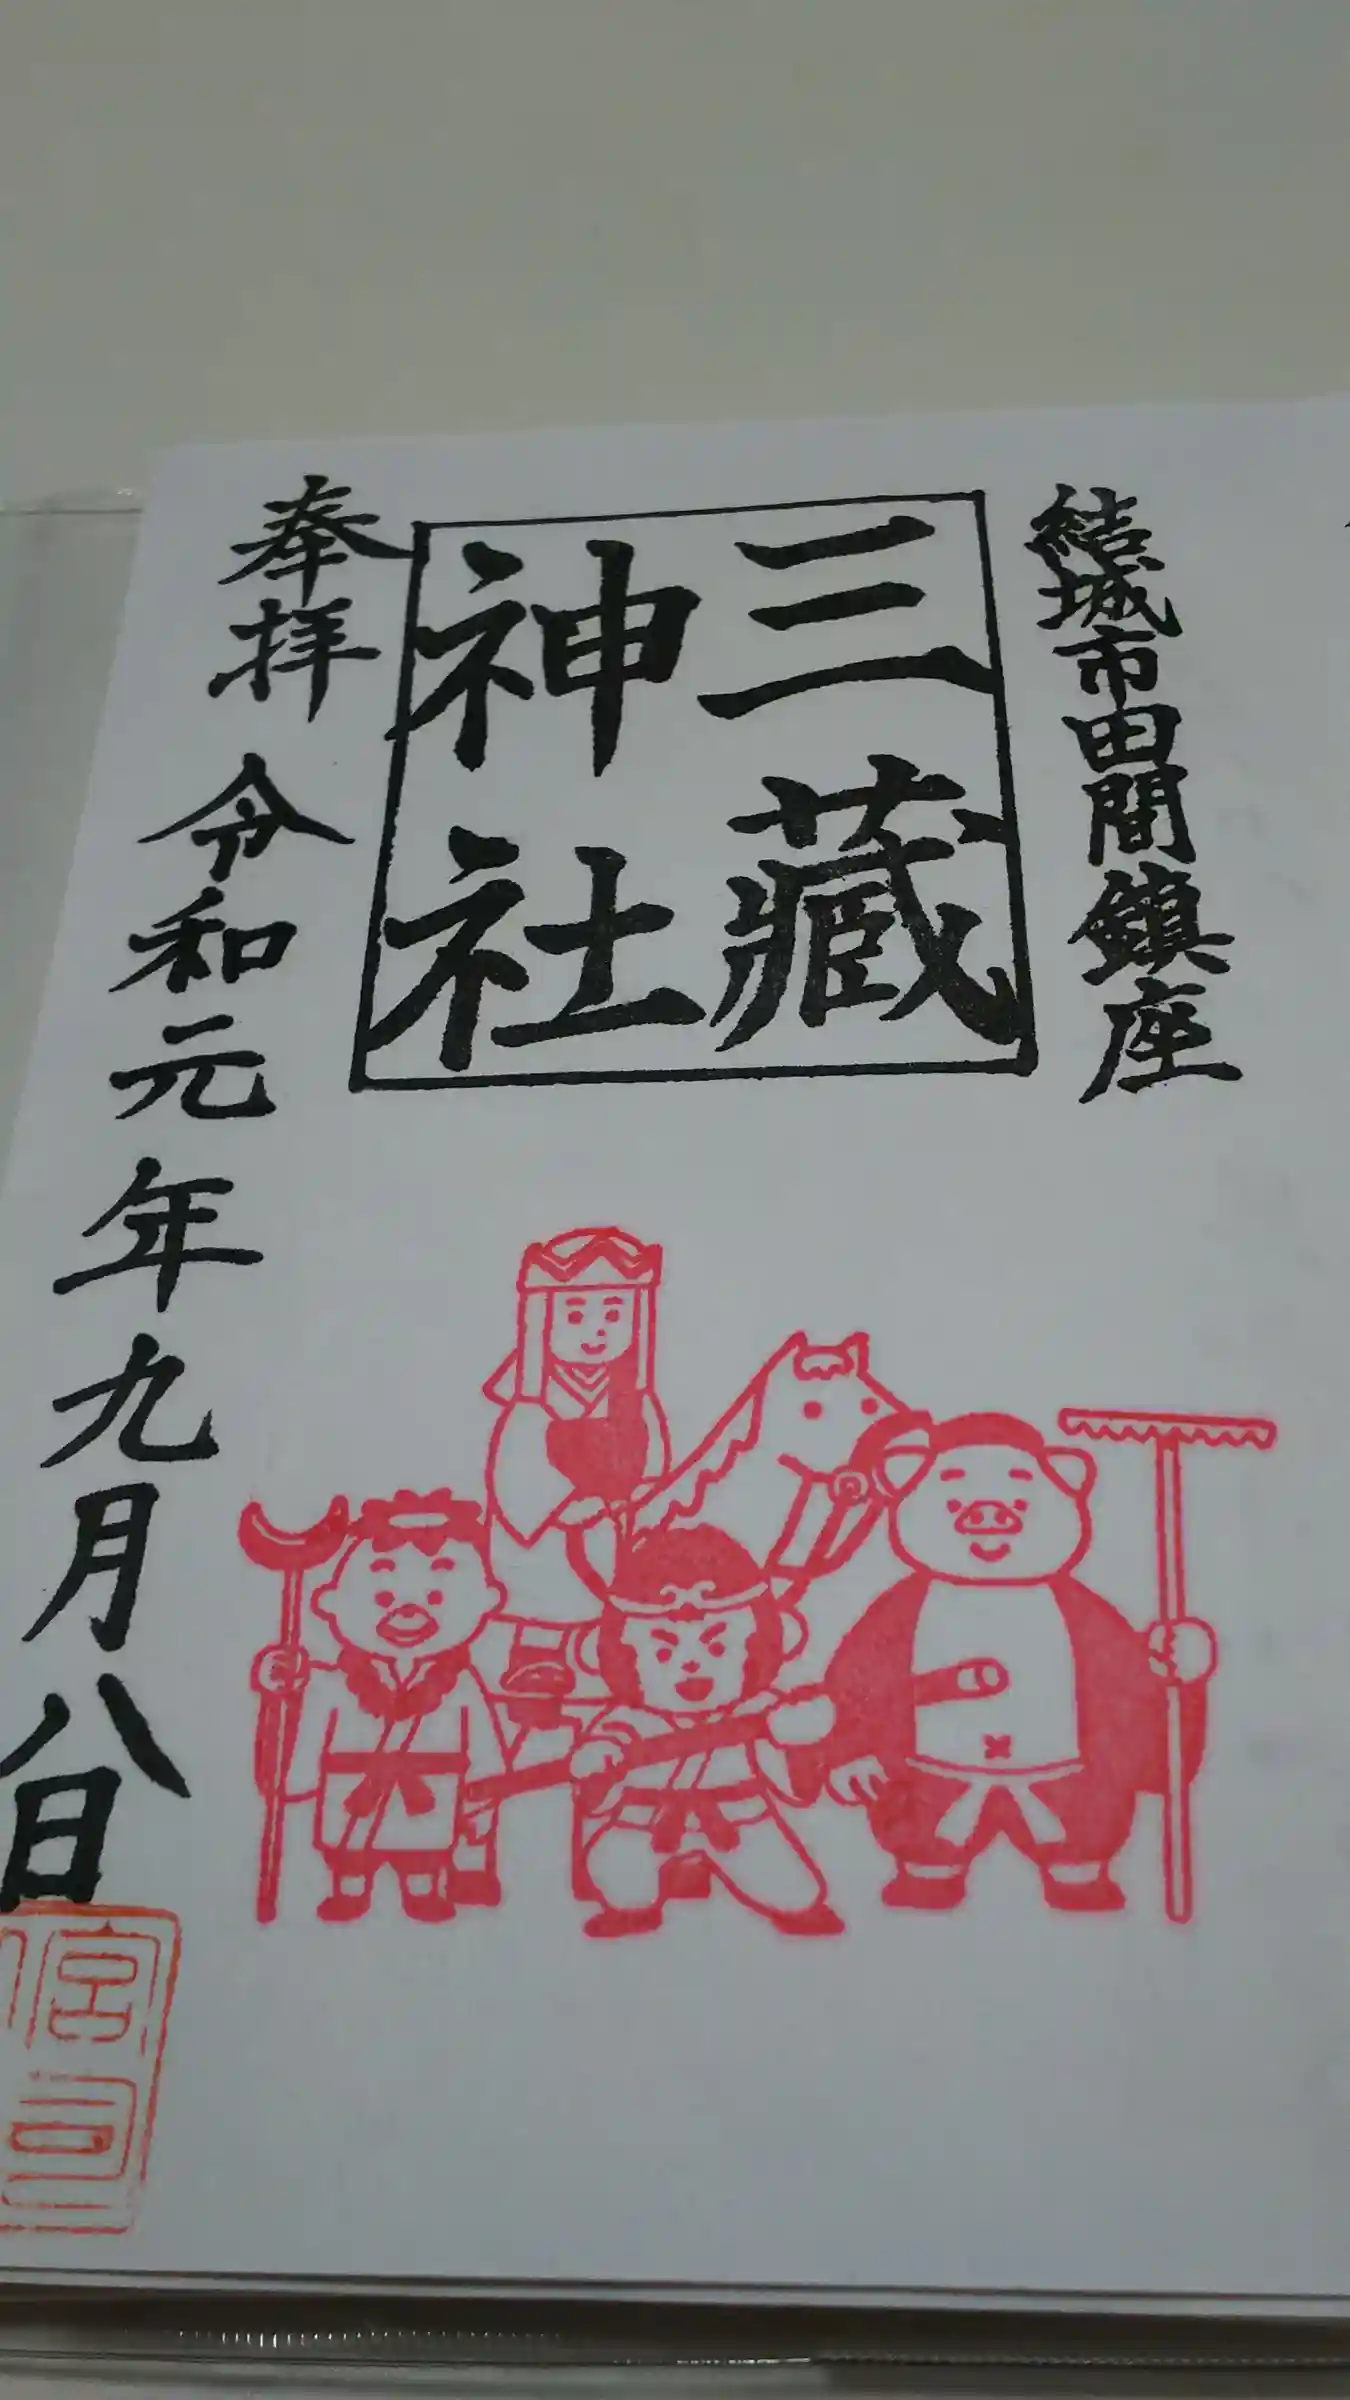 結城市田間鎮座
三藏
神社
奉拝 令和元年九月八日
宮司